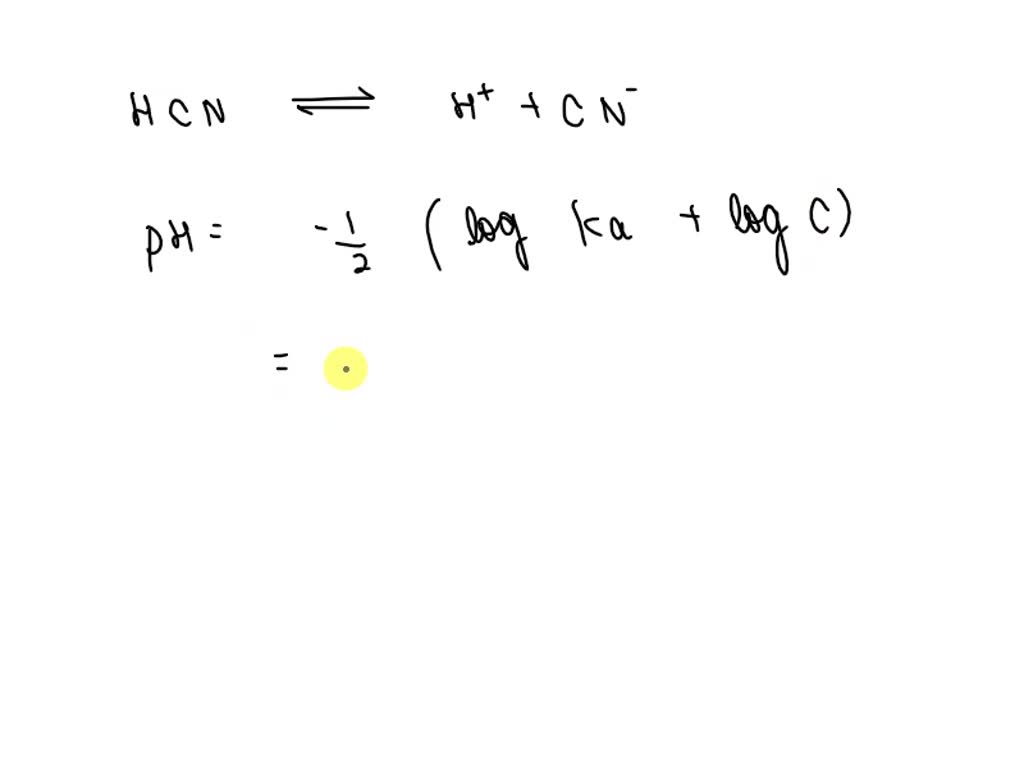 HCN ⇌ H⁺ + CN⁻
pH = -1/2 (log Ka + log C)
=